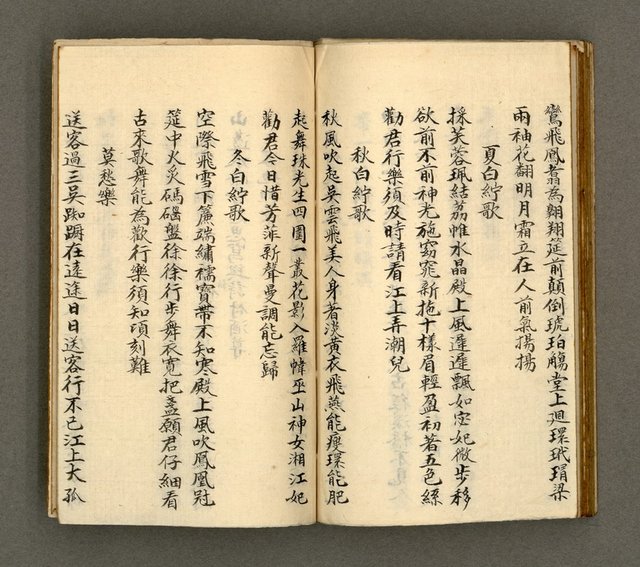 鸞飛鳳翥為翱翔筵前顛倒琥珀觴堂上迴環玳瑁梁
兩袖花翻明月霜立在人前氣揚揚
夏白紵歌
採芙蓉珮結荔帷水晶殿上風遲遲飄如宓妃微步移
欲前不前神光施窈窕新拖十樣眉輕盈初著五色絲
勸君行樂須及時請看江上弄潮兒
秋白紵歌
秋風吹起吳雲飛美人身著淡黃衣飛燕能瘦環能肥
起舞珠光生四圍一叢花影入羅幃巫山神女湘江妃
勸君今日惜芳菲新聲曼調能忘歸
冬白紵歌
空際飛雪下簾端繡襦寶帶不知寒殿上風吹鳳凰冠
筵中火炙碼磘盤徐徐行步舞衣寬把盞願君仔細看
古來歌舞能為歡行樂須知頃刻難
莫愁樂
送客過三吳踟躕在遠途日日送客行不已江上大孤